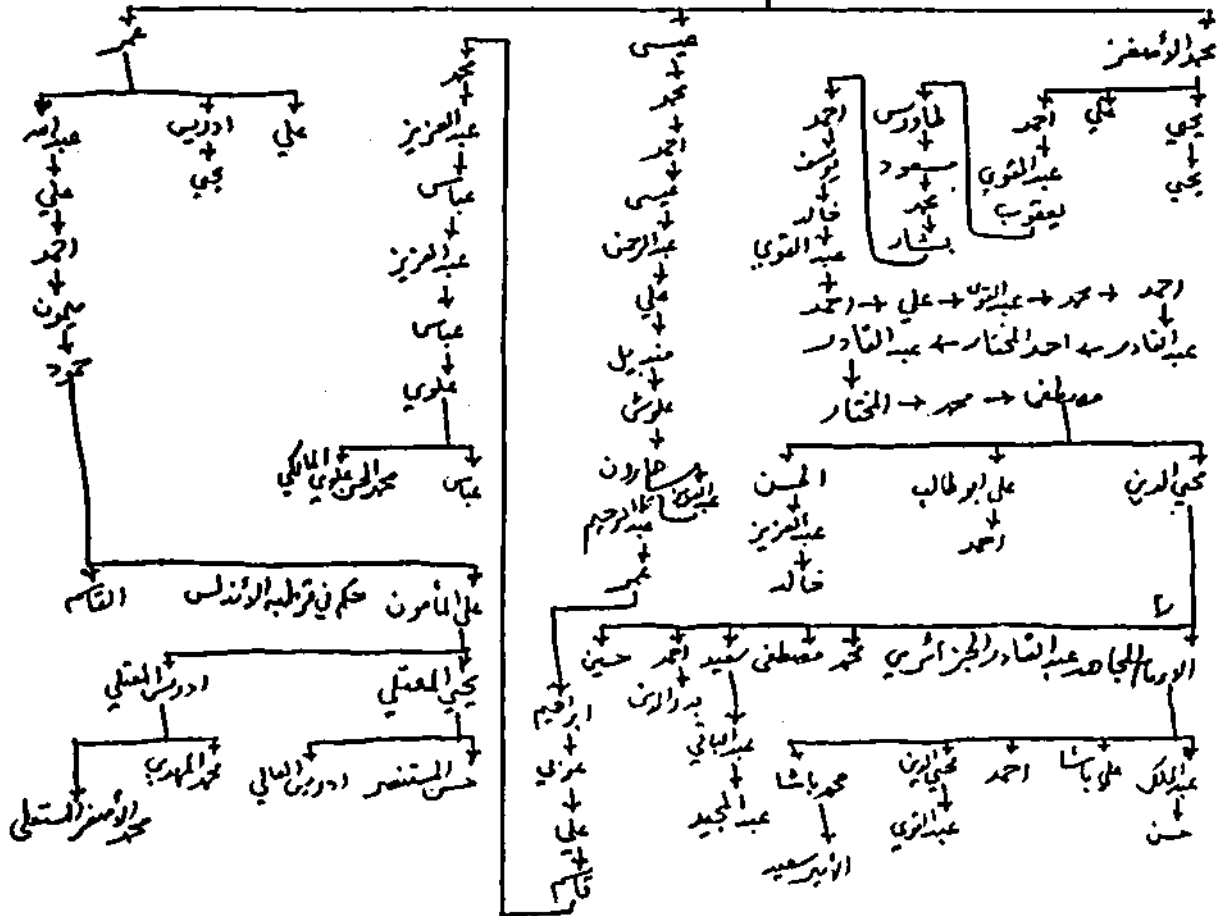 محمد الأصغر
يحيى
يحيى
علي
احمد
عبد القوي
يعقوب
طاووس
مسعود
محمد
بشار
احمد
خالد
عبد القوي
احمد ← علي ← عبد القوي ← محمد ← احمد
عبد القادر ← احمد المختار ← عبد القادر
المختار ← محمد ← مصطفى
محيي الدين
علي ابو طالب
احمد
الحسن
عبد العزيز
خالد
الامام المجاهد عبد القادر الجزائري
محمد
مصطفى
سعيد
عبد الباقي
عبد المجيد
احمد
بدر الدين
حسين
عبد الملك
حسن
علي باشا
احمد
محيي الدين
عبد القوي
محمد باشا
الأمير سعيد
عيسى
محمد
محمد
عيسى
عبد الرحمن
علي
منديل
علوش
هارون
عبد العزيز
عبد الرحيم
عمر
ابراهيم
عربي
علي
قاسم
محمد
عبد العزيز
عباس
عبد العزيز
عباس
علوي
عباس
محمد الحسن علوي المالكي
عمر
علي
ادريس
يحيى
عبد الله
علي
احمد
ميمون
حمود
علي المأمون
حكم في قرطبه الاندلس
القاسم
يحيى المعتلي
ادريس المعتلي
حسن المستنصر
ادريس العالي
محمد المهدي
محمد الأصغر المستعلي